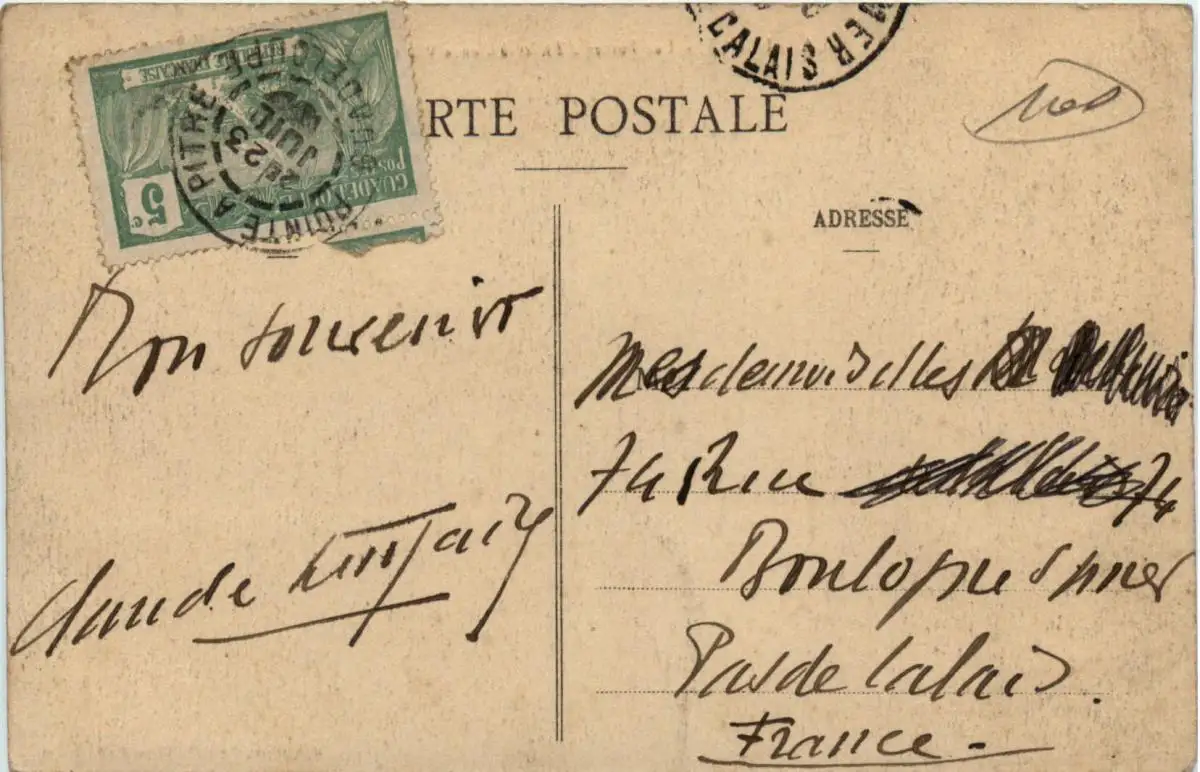 RÉPUBLIQUE FRANÇAISE
GUADELOUPE
POSTES
5 c.
POINTE A PITRE
GUADELOUPE
23
JUIL
CALAIS
MER
RTE POSTALE
ADRESSE
Bon souvenir
Claude
Mesdemoiselles
74 Rue 74
Boulogne s mer
Pas de Calais.
France